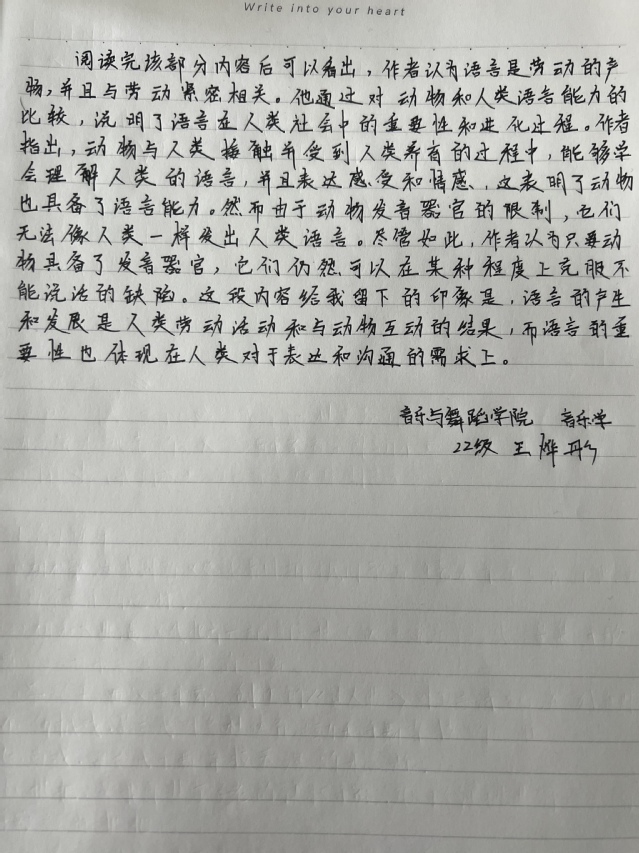 Write into your heart
阅读完该部分内容后可以看出，作者认为语言是劳动的产
物，并且与劳动紧密相关。他通过对动物和人类语言能力的
比较，说明了语言在人类社会中的重要性和进化过程。作者
指出，动物与人类接触并受到人类养育的过程中，能够学
会理解人类的语言，并且表达感受和情感，这表明了动物
也具备了语言能力。然而由于动物发音器官的限制，它们
无法像人类一样发出人类语言。尽管如此，作者认为只要动
物具备了发音器官，它们仍然可以在某种程度上克服不
能说话的缺陷。这段内容给我留下的印象是，语言的产生
和发展是人类劳动活动和与动物互动的结果，而语言的重
要性也体现在人类对于表达和沟通的需求上。
音乐与舞蹈学院 音乐学
22级 王烨丹